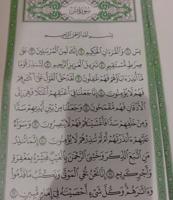 سُورَةُ يسٓ
بِسۡمِ ٱللَّهِ ٱلرَّحۡمَٰنِ ٱلرَّحِيمِ
يسٓ ١ وَٱلۡقُرۡءَانِ ٱلۡحَكِيمِ ٢ إِنَّكَ لَمِنَ ٱلۡمُرۡسَلِينَ ٣ عَلَىٰ
صِرَٰطٖ مُّسۡتَقِيمٖ ٤ تَنزِيلَ ٱلۡعَزِيزِ ٱلرَّحِيمِ ٥ لِتُنذِرَ قَوۡمٗا
مَّآ أُنذِرَ ءَابَآؤُهُمۡ فَهُمۡ غَٰفِلُونَ ٦ لَقَدۡ حَقَّ ٱلۡقَوۡلُ عَلَىٰٓ أَكۡثَرِهِمۡ
فَهُمۡ لَا يُؤۡمِنُونَ ٧ إِنَّا جَعَلۡنَا فِيٓ أَعۡنَٰقِهِمۡ أَغۡلَٰلٗا فَهِيَ إِلَى
ٱلۡأَذۡقَانِ فَهُم مُّقۡمَحُونَ ٨ وَجَعَلۡنَا مِنۢ بَيۡنِ أَيۡدِيهِمۡ سَدّٗا
وَمِنۡ خَلۡفِهِمۡ سَدّٗا فَأَغۡشَيۡنَٰهُمۡ فَهُمۡ لَا يُبۡصِرُونَ ٩ وَسَوَآءٌ
عَلَيۡهِمۡ ءَأَنذَرۡتَهُمۡ أَمۡ لَمۡ تُنذِرۡهُمۡ لَا يُؤۡمِنُونَ ١٠ إِنَّمَا تُنذِرُ
مَنِ ٱتَّبَعَ ٱلذِّكۡرَ وَخَشِيَ ٱلرَّحۡمَٰنَ بِٱلۡغَيۡبِۖ فَبَشِّرۡهُ بِمَغۡفِرَةٖ
وَأَجۡرٖ كَرِيمٍ ١١ إِنَّا نَحۡنُ نُحۡيِ ٱلۡمَوۡتَىٰ وَنَكۡتُبُ مَا قَدَّمُواْ
وَءَاثَٰرَهُمۡۚ وَكُلَّ شَيۡءٍ أَحۡصَيۡنَٰهُ فِيٓ إِمَامٖ مُّبِينٖ ١٢